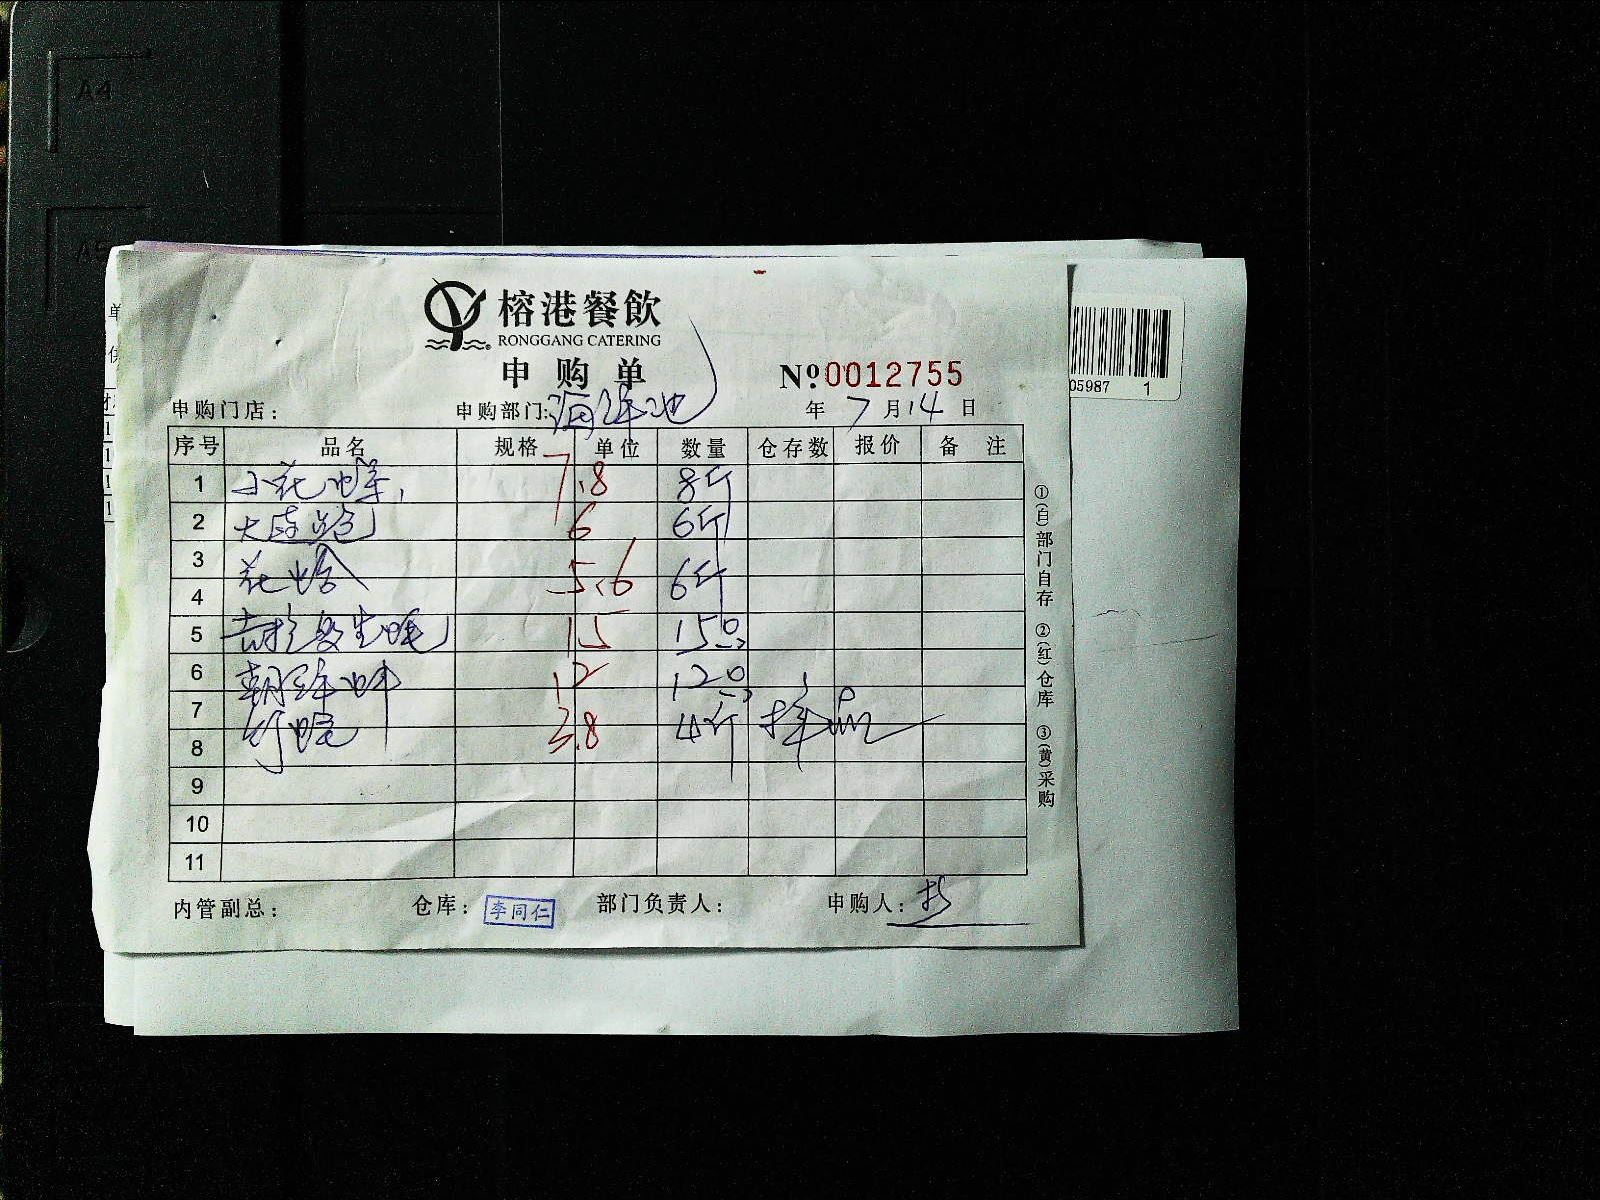 A4
A5
榕港餐飲
RONGGANG CATERING
申购单
№ 0012755
申购门店： 申购部门：海鲜池 年 7 月 14 日
序号 品名 规格 单位 数量 仓存数 报价 备注
1 小花螺 7.8 8斤
2 大连鲍 6 6斤
3 花蛤
4 5.6 6斤
5 生蚝 15 15只
6 朝鲜蚌 12 12只
7
8 竹蛏 3.8 4斤 样品
9
10
11
内管副总： 仓库：李同仁 部门负责人： 申购人：
①(白)部门自存 ②(红)仓库 ③(黄)采购
05987 1
单
供